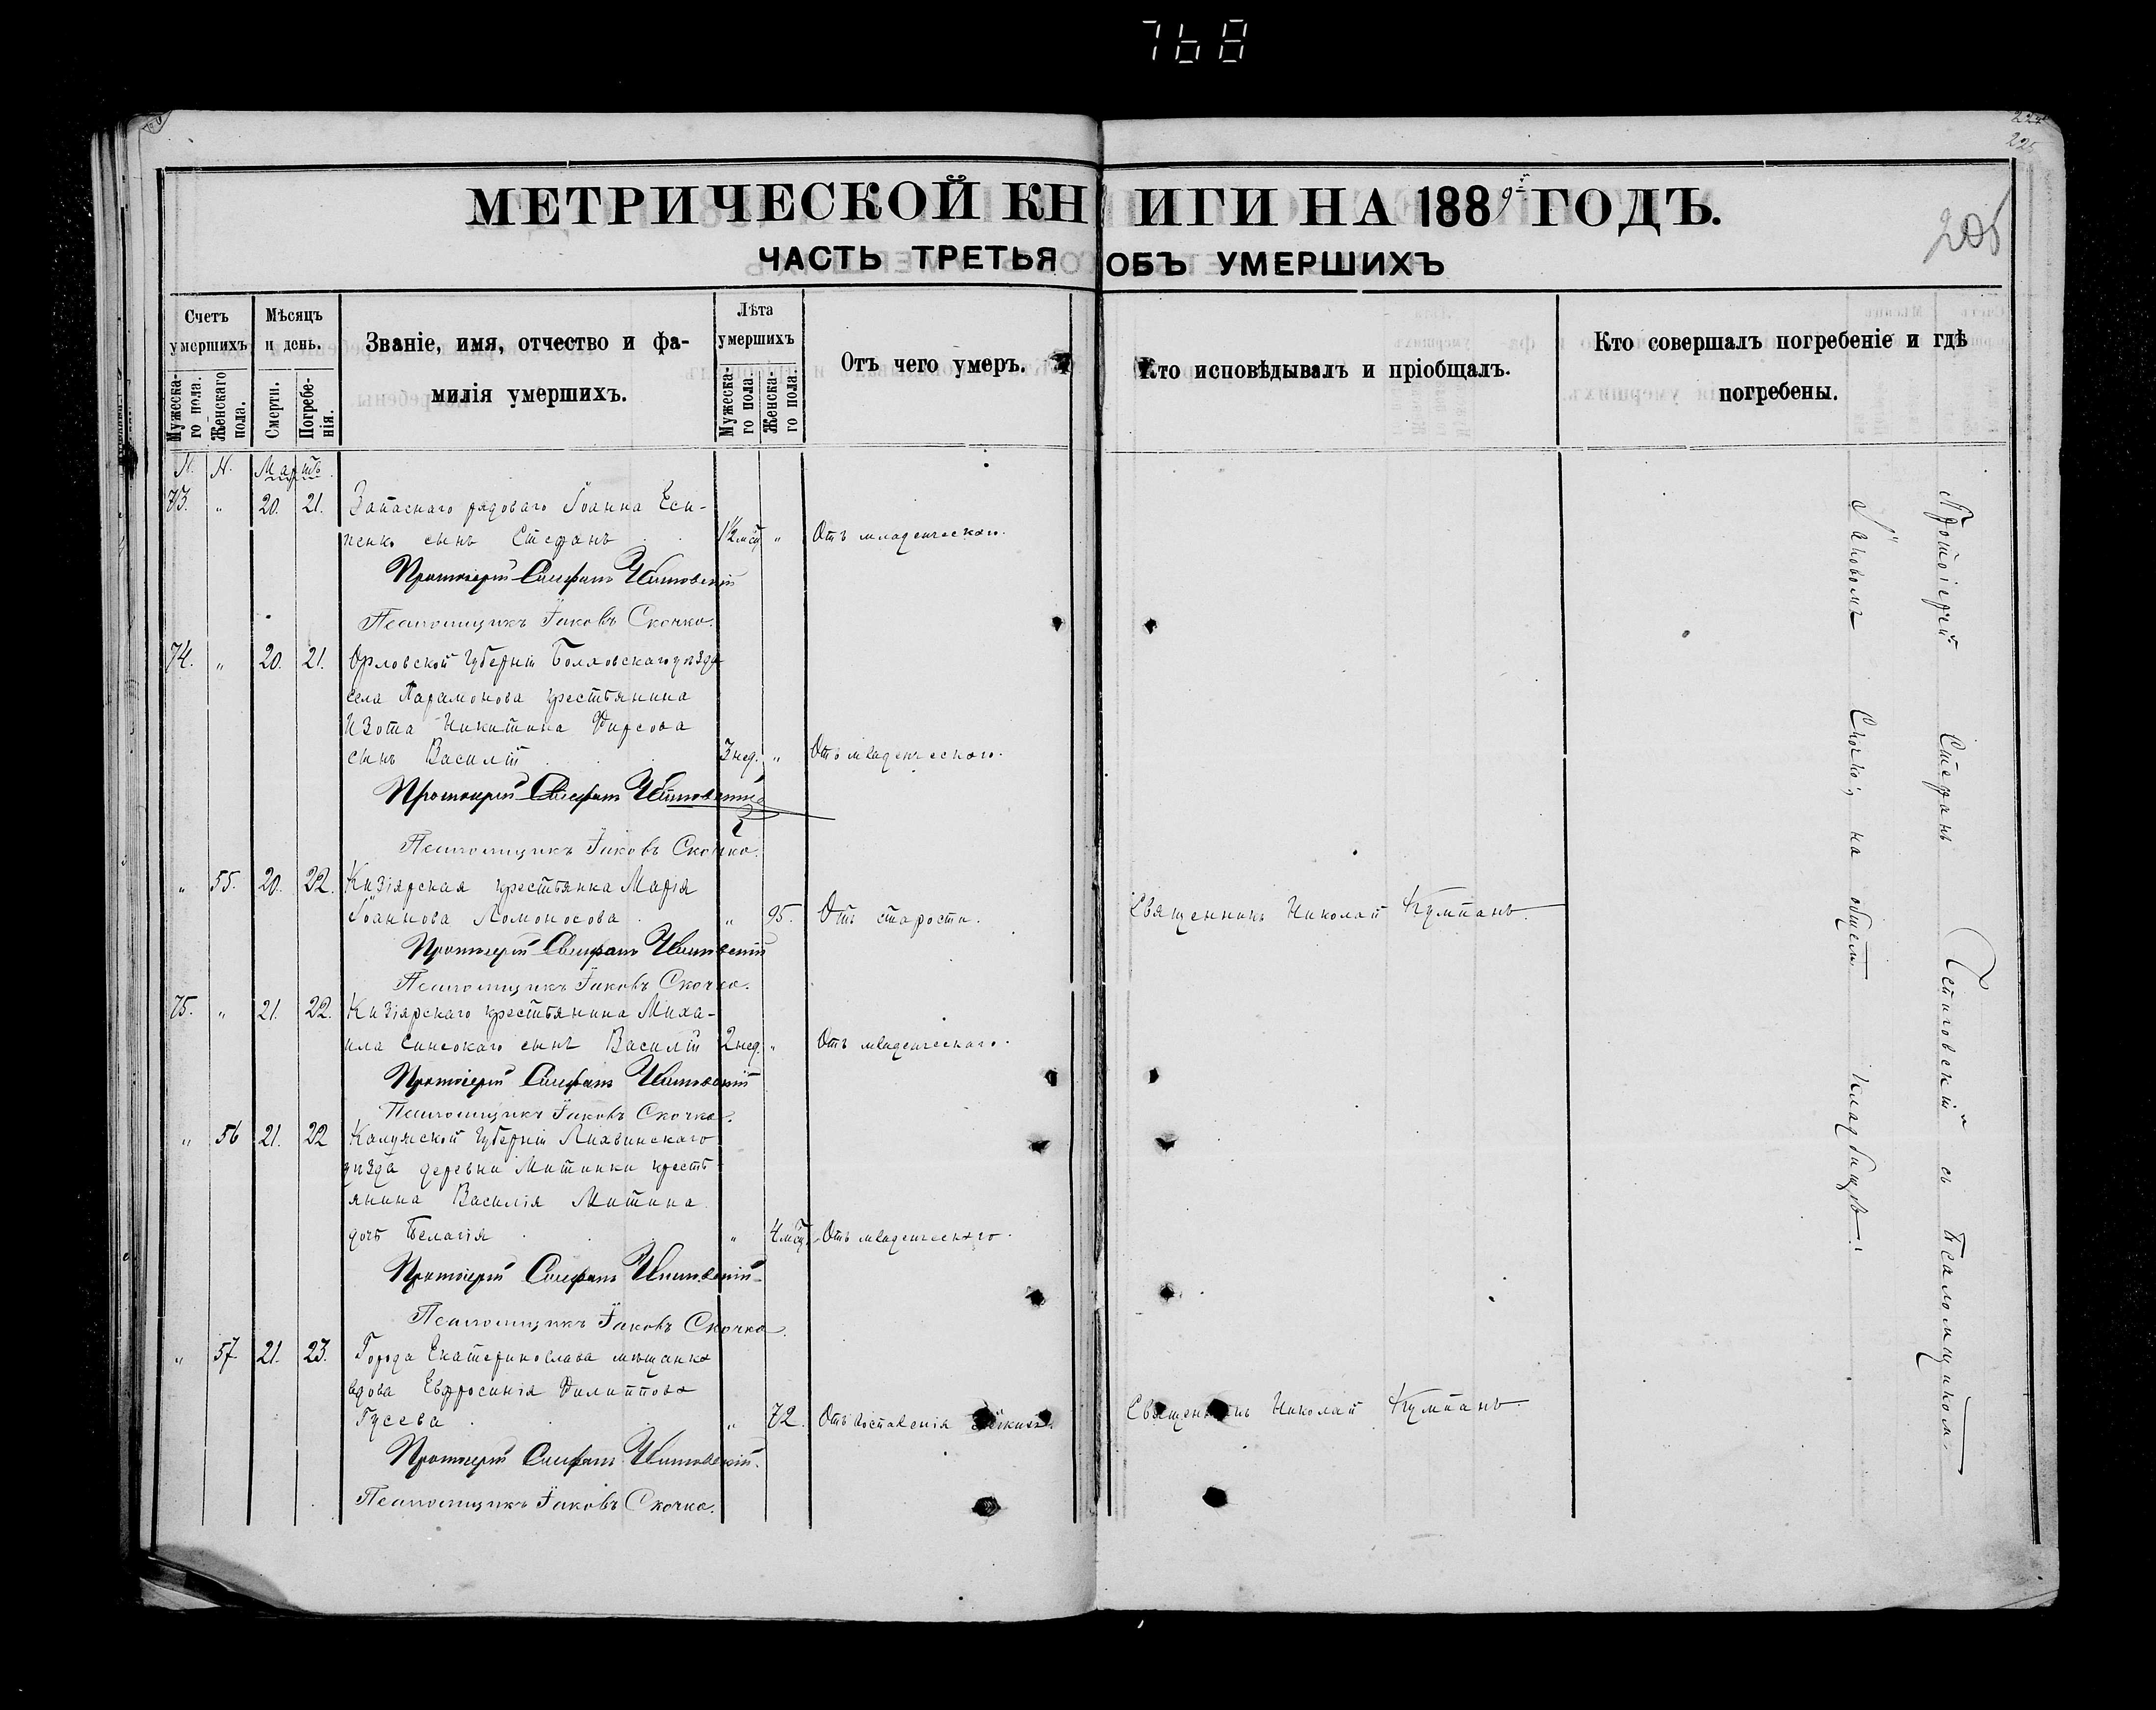 768
224
225
205
МЕТРИЧЕСКОЙ КНИГИ НА 1889й ГОДЪ.
ЧАСТЬ ТРЕТЬЯ ОБЪ УМЕРШИХЪ
Счетъ умершихъ
Мужеска-го пола.
Женскаго пола.
Мѣсяцъ и день.
Смерти.
Погребе-нія.
Званіе, имя, отчество и фа-
милія умершихъ.
Лѣта умершихъ
Мужеска-го пола.
Женска-го пола.
Отъ чего умеръ.
Кто исповѣдывалъ и пріобщалъ.
Кто совершалъ погребеніе и гдѣ
погребены.
Мартъ.
73. " 20. 21. Запаснаго рядоваго Іоанна Еси-
пенко сынъ Стефанъ 1½ мсц " Отъ младенческаго.
Протоіерей Стефанъ
Псаломщикъ Іаковъ Скочко.
74. " 20. 21. Орловской Губерніи Болховскаго уѣзда
села Парамонова крестьянина
Изота Никитина Фирсова
сынъ Василій 3 нед. " Отъ младенческаго.
Протоіерей Стефанъ
Псаломщикъ Іаковъ Скочко.
" 55. 20. 22. Кизіярская крестьянка Марія
Іоаннова Ломоносова " 95. Отъ старости. Священникъ Николай Кумпанъ.
Протоіерей Стефанъ
Псаломщикъ Іаковъ Скочко.
75. " 21. 22. Кизіярскаго крестьянина Миха-
ила Синеокаго сынъ Василій 2 нед. " Отъ младенческаго.
Протоіерей Стефанъ
Псаломщикъ Іаковъ Скочко.
" 56 21. 22 Калужской Губерніи
уѣзда деревни Митинки кресть
янина Василія Митина
дочь Пелагія " 4 мсц. Отъ младенческаго.
Протоіерей Стефанъ
Псаломщикъ Іаковъ Скочко.
" 57. 21. 23. Города Екатеринослава мѣщанка
вдова Евфросинія Филиппова
Гусева " 72. Отъ воспаленія Священникъ Николай Кумпанъ.
Протоіерей Стефанъ
Псаломщикъ Іаковъ Скочко.
Протоіерей Стефанъ съ псаломщикомъ
Іаковомъ Скочко; на общемъ кладбищѣ.